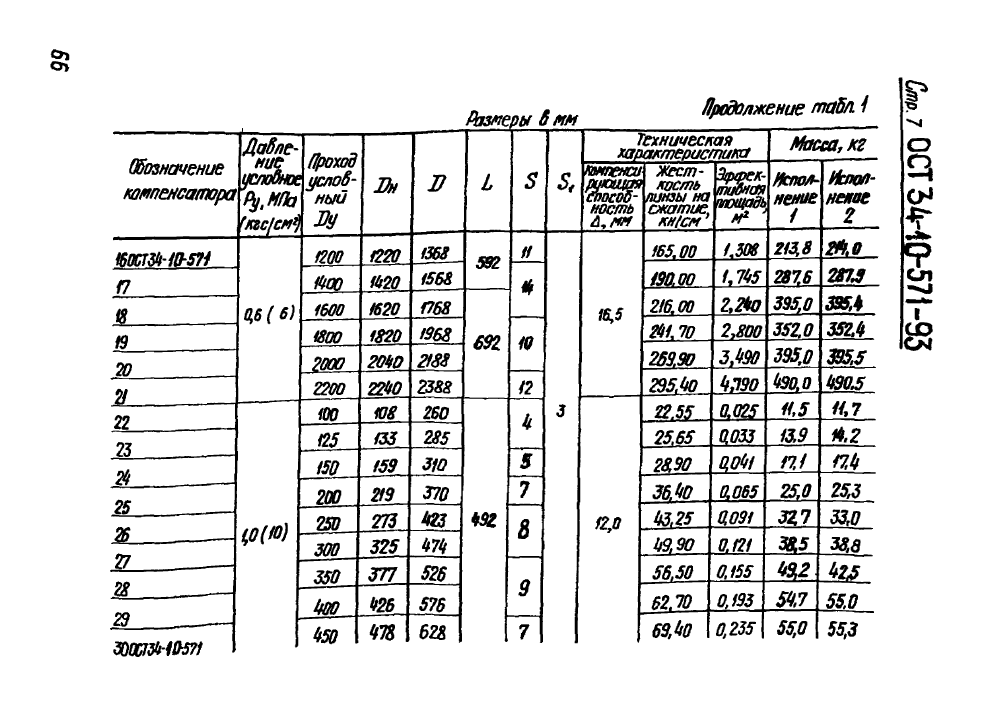 66
Стр. 7 ОСТ 34-10-571-93
Продолжение табл. 1
Размеры в мм
Обозначение компенсатора | Давление условное Ру, МПа (кгс/см²) | Проход условный Ду | Dн | D | L | S | S₁ | Техническая характеристика | Масса, кг
Компенсирующая способность Δ, мм | Жесткость линзы на сжатие, кН/см | Эффективная площадь, м² | Исполнение 1 | Исполнение 2
16 ОСТ34-10-571 | 0,6 (6) | 1200 | 1220 | 1368 | 592 | 11 | 3 | 16,5 | 165,00 | 1,308 | 213,8 | 214,0
17 | 1400 | 1420 | 1568 | 14 | 190,00 | 1,745 | 287,6 | 287.9
18 | 1600 | 1620 | 1768 | 692 | 216,00 | 2,240 | 395,0 | 395,4
19 | 1800 | 1820 | 1968 | 10 | 241,70 | 2,800 | 352,0 | 352,4
20 | 2000 | 2040 | 2188 | 269,90 | 3,490 | 395,0 | 395,5
21 | 2200 | 2240 | 2388 | 12 | 295,40 | 4,190 | 490,0 | 490.5
22 | 1,0 (10) | 100 | 108 | 260 | 492 | 4 | 12,0 | 22,55 | 0,025 | 11,5 | 11,7
23 | 125 | 133 | 285 | 25,65 | 0,033 | 13.9 | 14.2
24 | 150 | 159 | 310 | 5 | 28,90 | 0,041 | 17,1 | 17,4
25 | 200 | 219 | 370 | 7 | 36,40 | 0,065 | 25,0 | 25,3
26 | 250 | 273 | 423 | 8 | 43,25 | 0,091 | 32,7 | 33,0
27 | 300 | 325 | 474 | 49,90 | 0,121 | 38,5 | 38,8
28 | 350 | 377 | 526 | 9 | 56,50 | 0,155 | 49,2 | 42,5
29 | 400 | 426 | 576 | 62,70 | 0,193 | 54,7 | 55,0
30 ОСТ34-10-571 | 450 | 478 | 628 | 7 | 69,40 | 0,235 | 55,0 | 55,3